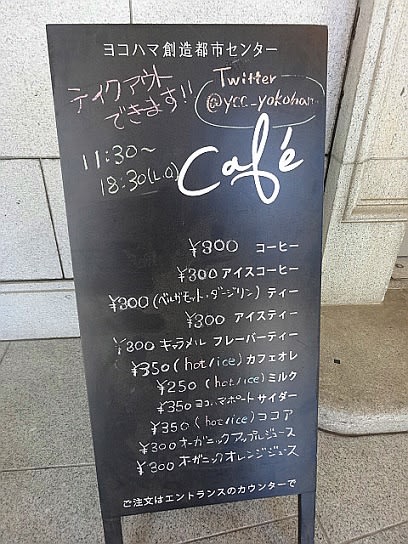 ヨコハマ創造都市センター
ティクアウト
できます!!
Twitter
@ycc_yokoham
11:30〜
18:30(L.O)
Café
¥300 コーヒー
¥300 アイスコーヒー
¥300 (ベルガモット・ダージリン) ティー
¥300 アイスティー
¥300 キャラメル フレーバーティー
¥350 (hot/ice) カフェオレ
¥250 (hot/ice) ミルク
¥350 ヨコハマポート サイダー
¥350 (hot/ice) ココア
¥300 オーガニックアップルジュース
¥300 オーガニックオレンジジュース
ご注文はエントランスのカウンターで